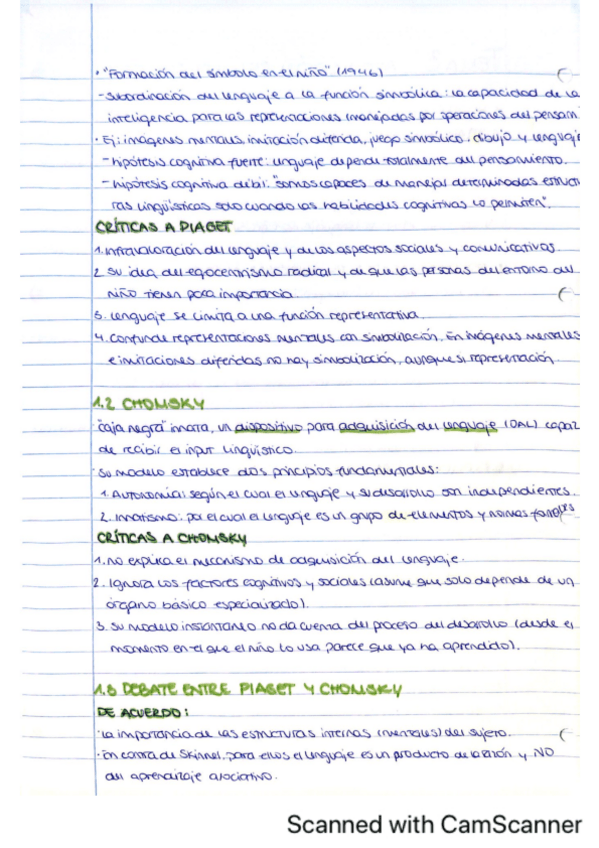 · "Formación del símbolo en el niño" (1946)
- Subordinación del lenguaje a la función simbólica: la capacidad de la
inteligencia para las representaciones manejadas por operaciones del pensam
· Ej: imágenes mentales, imitación diferida, juego simbólico, dibujo y lenguaje
- hipótesis cognitiva fuerte: lenguaje depende totalmente del pensamiento.
- hipótesis cognitiva débil: "somos capaces de manejar determinadas estruct
ras lingüísticas solo cuando las habilidades cognitivas lo permiten".
CRÍTICAS A PIAGET
1. Infravaloración del lenguaje y de los aspectos sociales y comunicativos.
2. Su idea del egocentrismo radical y de que las personas del entorno del
niño tienen poca importancia.
3. Lenguaje se limita a una función representativa.
4. Confunde representaciones mentales con simbolización. En imágenes mentales
e imitaciones diferidas no hay simbolización, aunque si representación
1.2 CHOMSKY
"Caja negra" innata, un dispositivo para adquisición del lenguaje (DAL) capaz
de recibir el input lingüístico.
· Su modelo establece dos principios fundamentales:
1. Autonomía: según el cual el lenguaje y su desarrollo son independientes.
2. Innatismo: por el cual el lenguaje es un grupo de elementos y normas formales
CRÍTICAS A CHOMSKY
1. no explica el mecanismo de adquisición del lenguaje.
2. Ignora los factores cognitivos y sociales (asume que solo depende de un
órgano básico especializado).
3. Su modelo instantáneo no da cuenta del proceso del desarrollo (desde el
momento en el que el niño lo usa parece que ya ha aprendido).
1.3 DEBATE ENTRE PIAGET Y CHOMSKY
DE ACUERDO:
· La importancia de las estructuras internas (mentales) del sujeto.
· En contra de Skinner, para ellos el lenguaje es un producto de la razón y NO
del aprendizaje asociativo.
Scanned with CamScanner